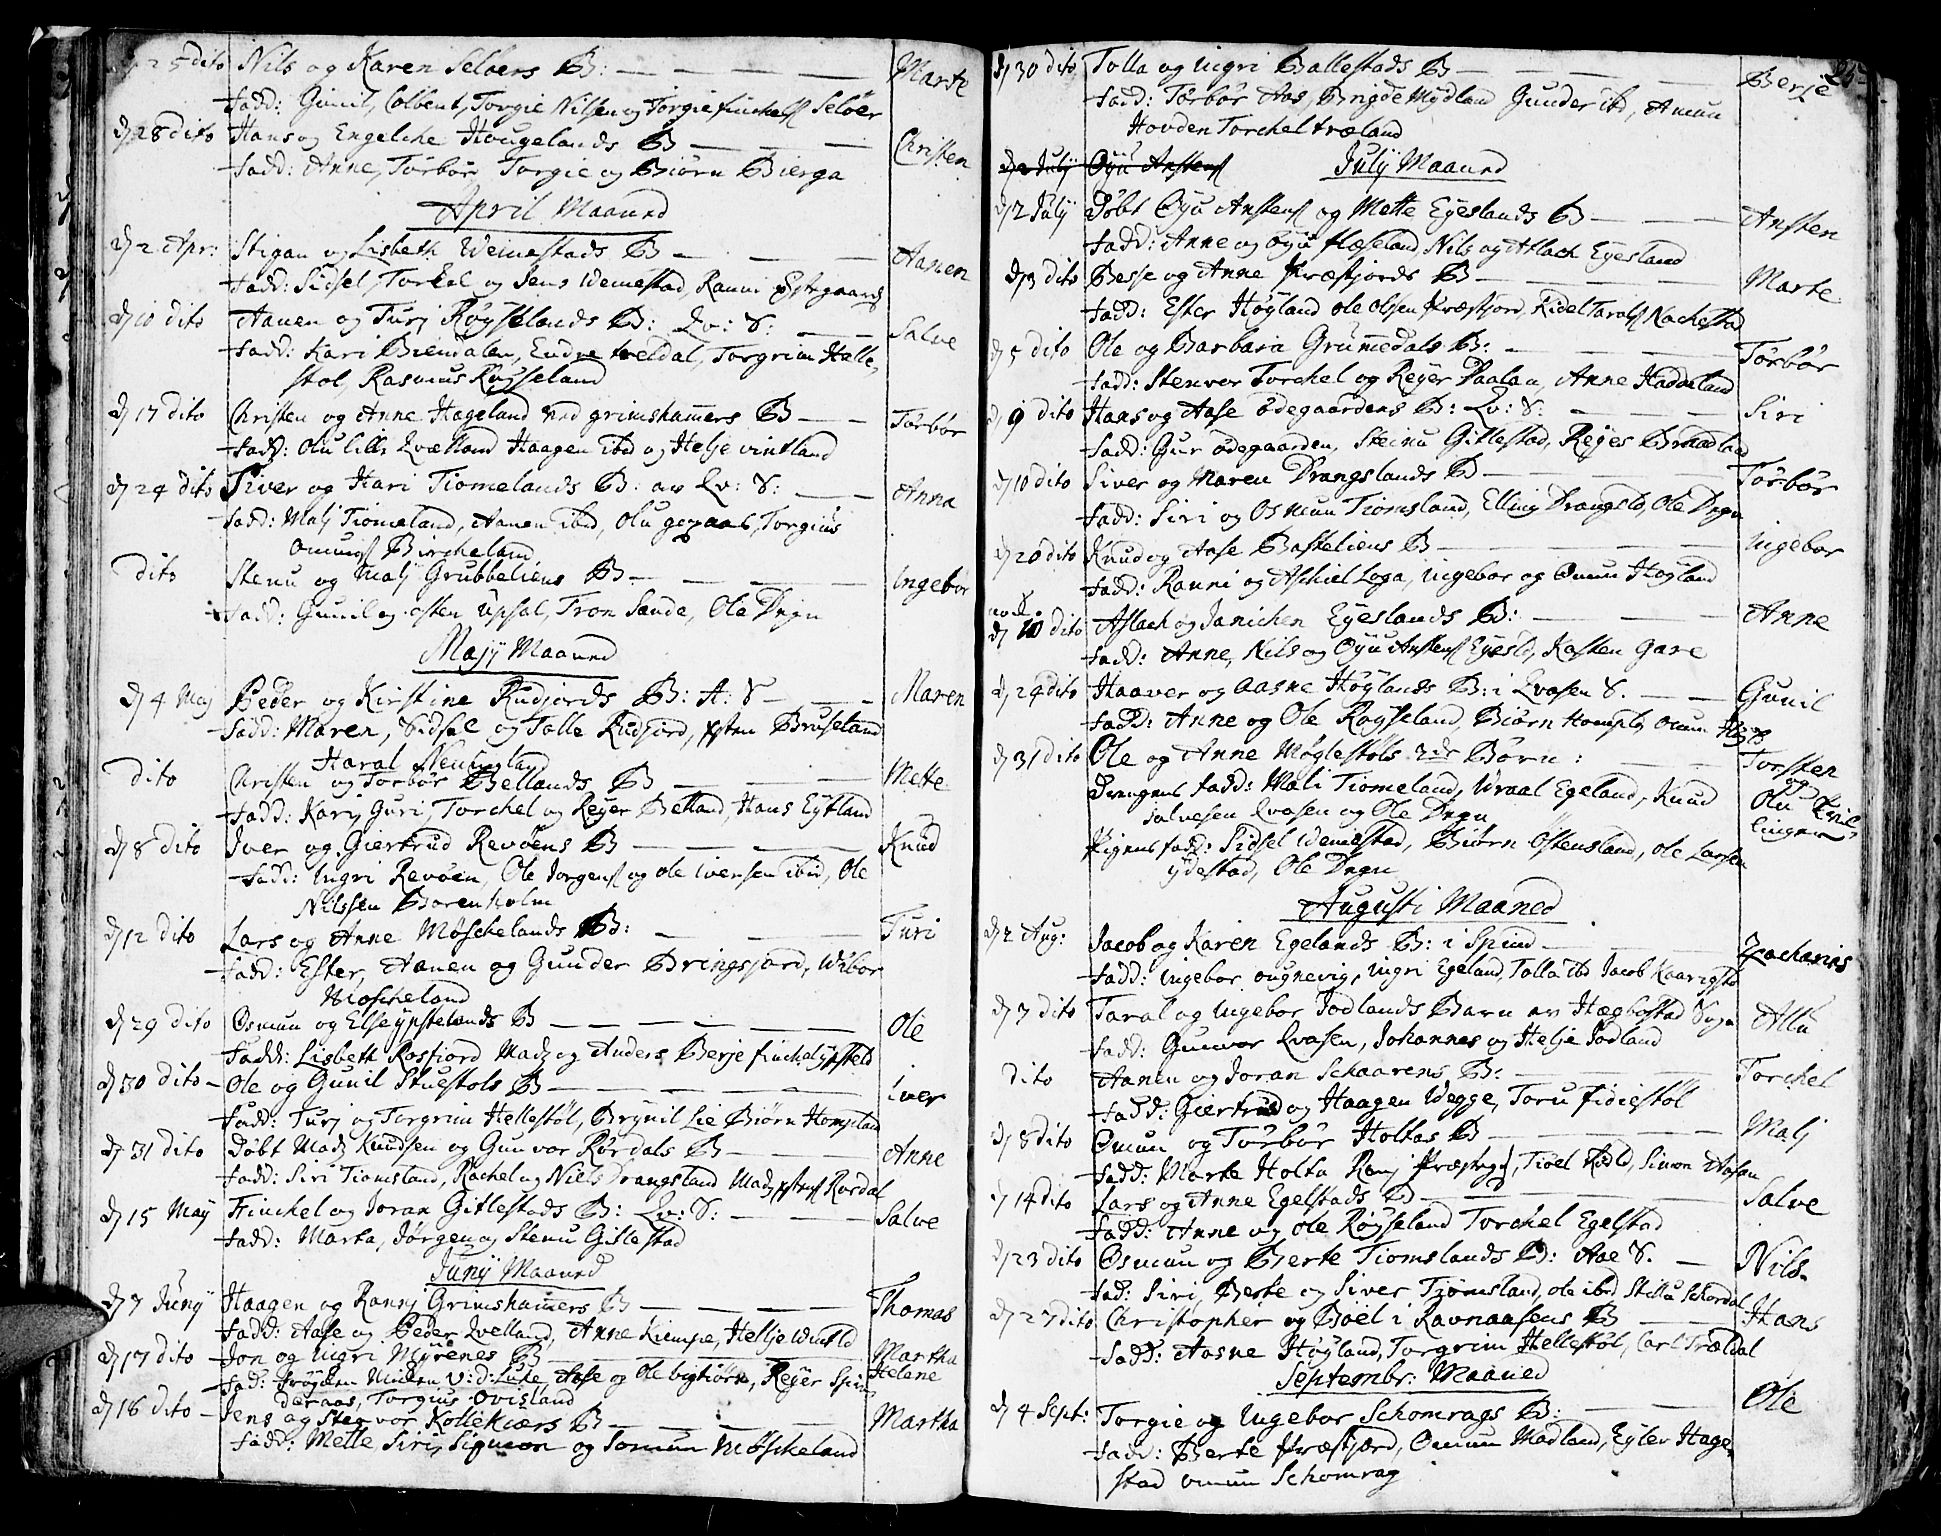 d 25 dito Nils og Karen Seloers B: — — — — Marte
Fadd: Gunil, Colbent, Torgie Nilsen og Torgie finckels Seloer
d 28 dito Hans og Engelche Hougelands B — — — Christen
Fadd: Anne, Torbor, Torgie og Biørn Bierga
April Maaned
d 2 Apr: Stigan og Lisbeth Wemestads B — — — Aanen
Fadd: Sidsel, Torkel og Jens Wemestad, Ranni
d 10 dito Aanen og Turj Røyselands B: Qv: S: — — Salve
Fadd: Kari Biendalen, Endre treldal, Torgrim Helle-
stol, Rasmus Røyseland
d 17 dito Christen og Anne Hageland ved grimshamers B — — Torbør
Fadd: Olu lille Qvelland Haagen ibd og Helje vintland
d 24 dito Siver og Kari Tiomelands B: av Qv: S: — — Anna
Fadd: Malj Tiomeland, Aanen ibid, Olu, Torgius
Omunds Bircheland
dito Stenu og Malj Grubbeliens B — — — — Ingebor
Fadd: Gunil og osten Upsal, Tron Sande, Ole Degn
Majj Maaned
d 4 Maj Peder og Kirstine Rudjords B: A: S — — — Maren
Fadd: Maren, Sidsel og Tolle Rudjord, Bruseland
Haral Neuhogland
dito Christen og Torbør Bellands B — — — Mette
Fadd: Karj, Guri, Torchel og Reyer Belland, Hans Eytland
d 8 dito Iver og Giertrud Revøens B — — — — Knud
Fadd: Ingri Revøen, Ole Jorgens og ole iversen ibid, Ole
Nilssen Borenholm
d 12 dito Lars og Anne Møschelands B: — — — Turi
Fadd: Ester, Aanen og Gunder Bringsjord, Wibor
Moscheland
d 29 dito Osmun og Else ypstelands B — — — — — Ole
Fadd: Lisbeth Rosfiord Madz og Anders Berje finchel ypsteld
d 30 dito — Ole og Gunil Stuestols B — — — — — Iver
Fadd: Turj og Torgrim Hellestøl, Brynil Lie Biørn Hompland
d 31 dito Døbt Madz Knudsen og Gunvor Rørdals B — — — Anne
Fadd: Siri Tiomsland, Rachel og Niels Drangsland Madz Rordal
d 15 May Finckel og Joran Gitlestads B: Qv: S: — — — Salve
Fadd: Marta, Jørgen og Stenu Gitlestad
Junij Maaned
d 7 Junij Haagen og Rannj Grimshamers B — — — — Thomas
Fadd: Aase og Peder Qvelland, Anne Kiempe, Hellje Wintld
d 17 dito Jon og Ingri Myrenes B — — — Martha
Helene
Fad: frøyden Muden V: d: Luke, Aase og Ole bigtiørn, Reyer Spin-
deraas, Torgius Ovisland
d 18 dito — Jens og Stegvor Kollekiærs B — — — — Martha
Fadd: Mette, Siri, Sigmon og Tomun Møscheland
25
d 30 dito Tolla og Ingri Ballestads B — — — — Berje
Fadd: Torbør Aas, Brigde Mydland Gunder ibd, Amun
Hovden Torchel træland
d 2 Julij Oyu Anstens Julij Maaned
d 2 Julij Døbt Oyu Anstens og Mette Eyeslands B — — — Ansten
Fadd: Anne og oyu flæseland, Nils og Aslach Eyesland
d 3 dito Besse og Anne Præsfjords B — — — — Marte
Fadd: Ester Høyland ole olsen Præstjord, Kidel Tarals Nachestad
d 5 dito Ole og Barbara Grummedals B: — — — — Torbør
Fadd: Stenvor Torchel og Reyer Daalan, Anne Haddeland
d 9 dito Hans og Aase Ødegaardens B: Qv: S: — — — Siri
Fadd: Gur ødegaarden, Steinu Gitlestad, Reyes Braadland
d 10 dito Siver og Maren Drangslands B — — — — Torbør
Fadd: Siri og Osmun Tiomsland, Elling Drangsld, Ole Degn
d 20 dito Knud og Aase Basteliens B — — — — Ingebor
Fadd: Ranni og Aschiel Loga, Ingebor og Omun Høyland
d 10 dito Aslach og Janichen Eyeslands B: — — — Anne
Fadd: Anne, Nils og Oyu Anstens Eyesld, Kasten Gare
d 24 dito Haaver og Aasne Høylands B: i Qvasen S. — — Gunil
Fadd: Anne og Ole Royseland, Biørn Hompld, Omun
d 31 dito Ole og Anne Møglestøls 2de Børn: — — Torsten
og
Olu Tvil-
linger
Drengens fadd: Mali Tiomeland, Wraal Egeland, Knud
salvesen Qvasen og Ole Degn
Pigens fadd: Sidsel Wemestad, Biørn Østensland, ole Larsen
ydestad, Ole Degn
Augusti Maaned
d 2 Aug: Jacob og Karen Egelands B: i Spind — — — Zacharis
Fadd: Ingebor ougnevig, Ingri Egeland, Tolla ibd Jacob Kaarigstd
d 7 dito Taral og Ingebor Jodlands Barn av Hægbostad Sogn Allu
Fadd: Gunvor Qvasen, Johannes og Helje Jodland
dito Aanen og Joran Schaarens B: — — — Torchel
Fadd: Giertrud og Haagen Wegge, Toru fidiestøl
d 8 dito Omun og Torbør Holtas B — — — — Malj
Fadd: Marte Holta Ranj, Tioel, Simon Aasen
d 14 dito Lars og Anne Egelstads B — — — — Salve
Fadd: Anne og ole Røyseland Torchel Egelstad
d 23 dito Osmun og Berte Tiomslands B: Aae S. — Nils
Fad: Siri, Berte og Siver Tjomsland, ole ibd Stillu Schordal
d 27 dito Christopher og Boel i Ravnaasens B — — Hans
Fadd: Aasne Høyland, Torgrim Hellestøl, Carl Træeldal
Septembr: Maaned
d 4 Sept: Torgie og Ingebor Schomrags B: — — Ole
Fadd: Berte Præstjord, Omun Madland, Eyler Hage-
stad omun Schomrag